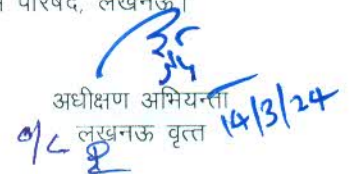 परिषद, लखनऊ।
अधीक्षण अभियन्ता
लखनऊ वृत्त
14/3/24